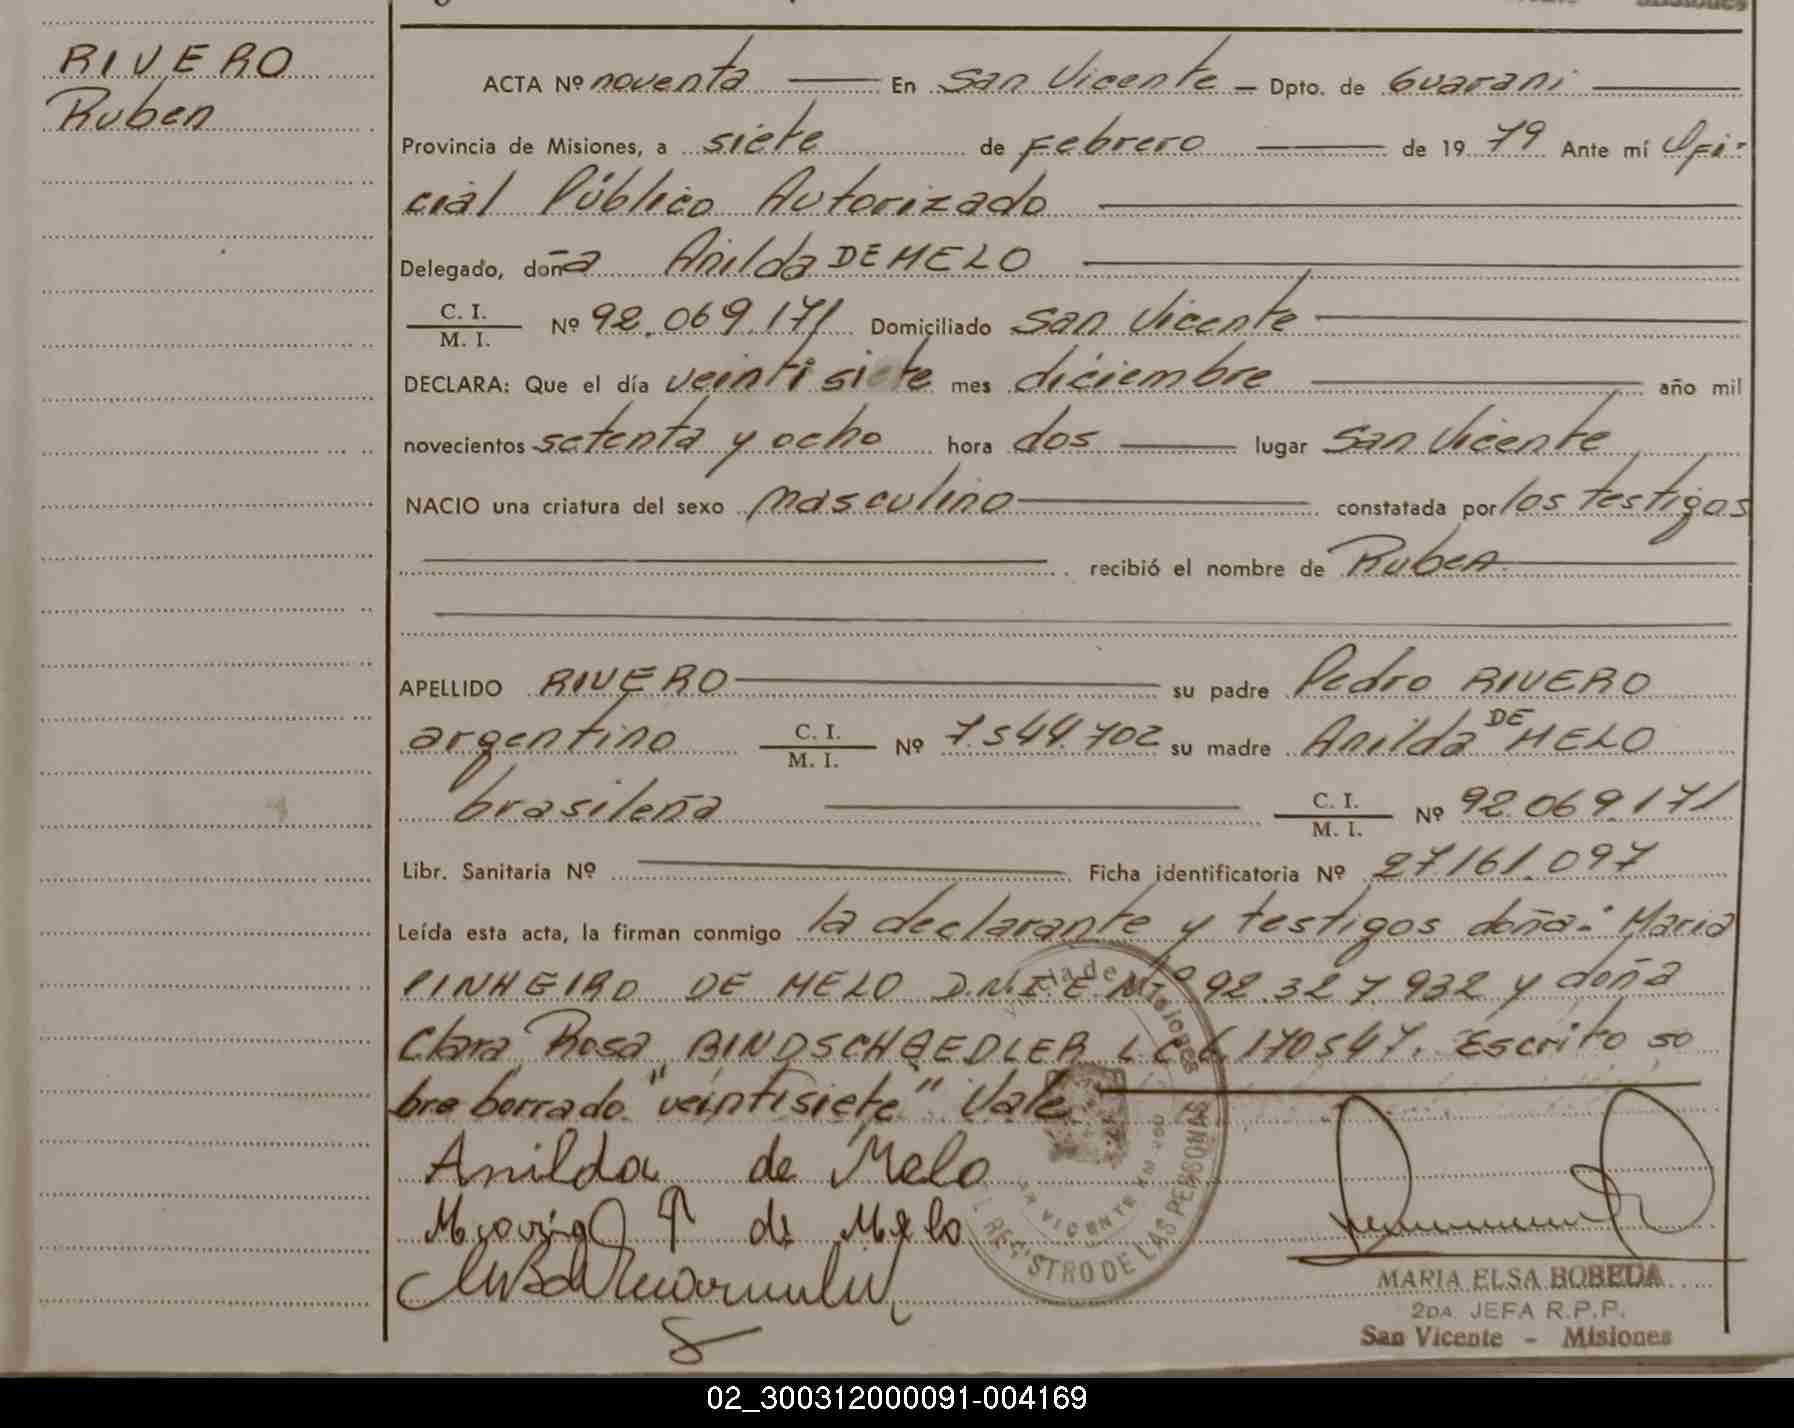 RIVERO
Ruben
ACTA Nº noventa En San Vicente Dpto. de Guarani
Provincia de Misiones, a siete de Febrero de 1979 Ante mí Ofi-
cial Público Autorizado
Delegado, doña Anilda DE MELO
C. I.
M. I. Nº 92.069.171 Domiciliado San Vicente
DECLARA: Que el día veintisiete mes diciembre año mil
novecientos setenta y ocho hora dos lugar San Vicente
NACIO una criatura del sexo masculino constatada por los testigos
recibió el nombre de Ruben
APELLIDO RIVERO su padre Pedro RIVERO
argentino C. I.
M. I. Nº 7.544.702 su madre Anilda DE MELO
brasileña C. I.
M. I. Nº 92.069.171
Libr. Sanitaria Nº Ficha identificatoria Nº 27.161.097
Leída esta acta, la firman conmigo la declarante y testigos doña: Maria
PINHEIRO DE MELO D.N.I.E.Nº 92.327.932 y doña
Clara Rosa BINDSCHAEDLER L C 6.170547. Escrito so
bre borrado "veintisiete" Vale
Anilda de Melo
de Melo
REGISTRO DE LAS PERSONAS
SAN VICENTE
Misiones
MARIA ELSA BOBEDA
2DA. JEFA R.P.P.
San Vicente - Misiones
02_300312000091-004169